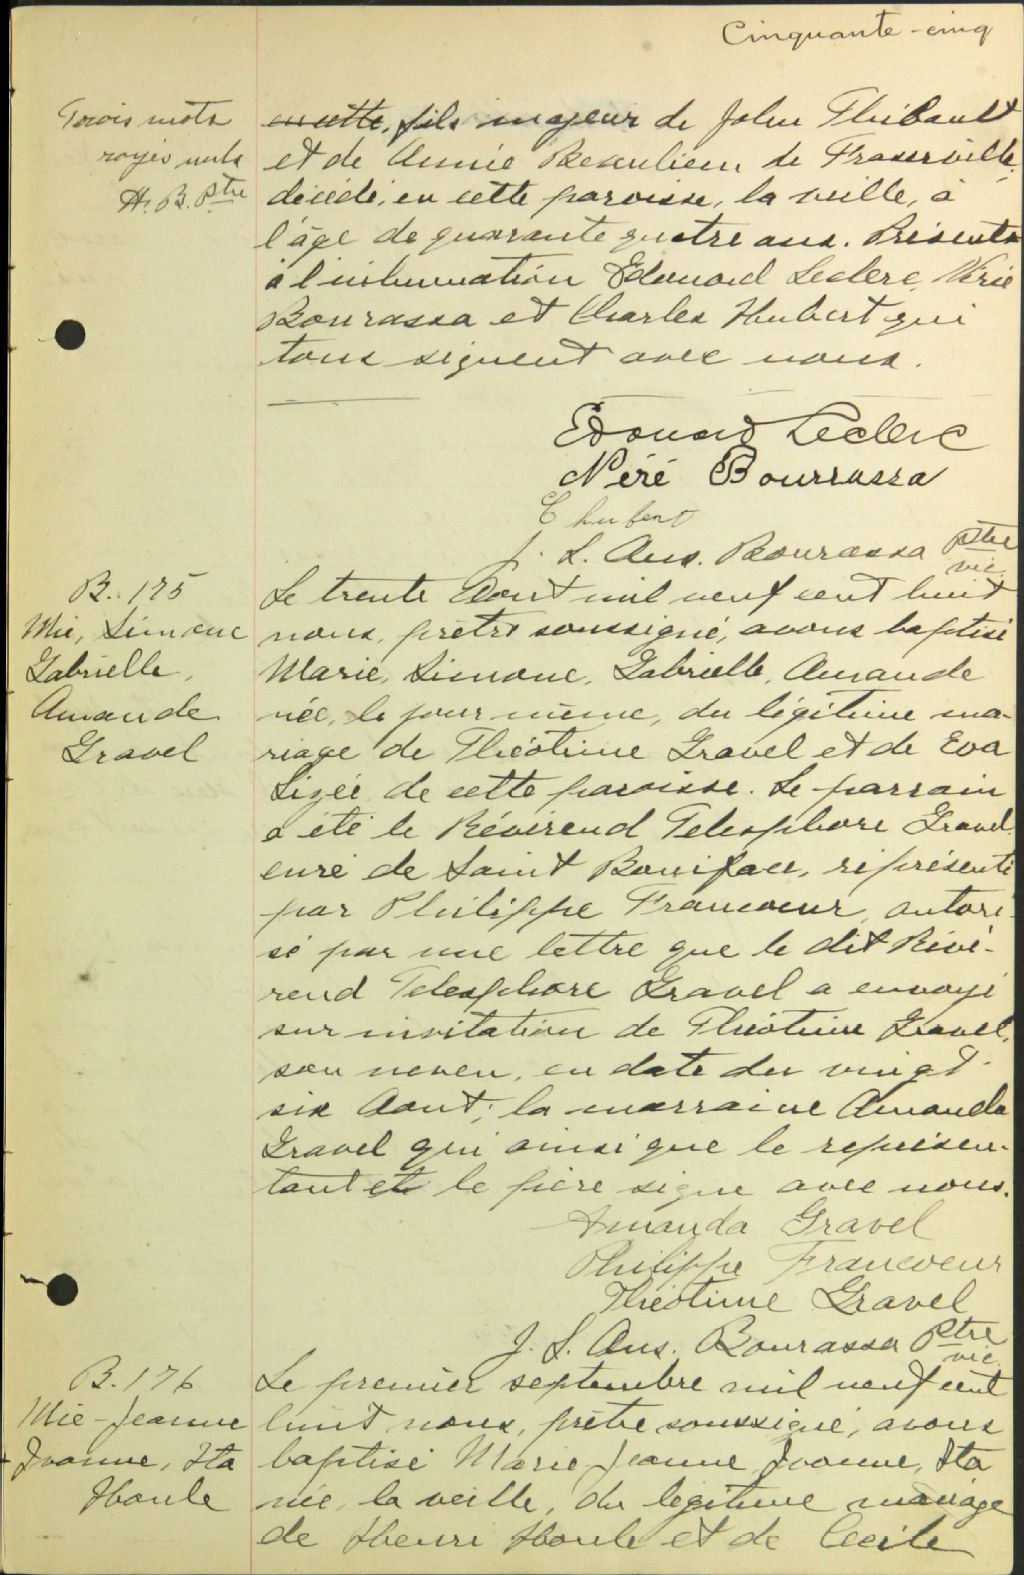 Cinquante-cinq
Trois mots
rayés nuls
A. B. Ptre
en cette, fils majeur de John Thibault
et de Annie Beaulieu de Fraserville,
décédé, en cette paroisse, la veille, à
l'âge de quarante quatre ans. Présents
à l'inhumation Edouard Leclerc, Néré
Bourassa et Charles Hubert qui
tous signent avec nous.
Edouard Leclerc
Néré Bourrassa
C hubert
J. L. Aus. Bourassa Ptre
vic.
B. 175
Mie, Simone
Gabrielle,
Amande
Gravel
Le trente Aout mil neuf cent huit
nous, prêtre soussigné, avons baptisé
Marie, Simone, Gabrielle, Amande
née, le jour même, du légitime ma-
riage de Théotime Gravel et de Eva
Lizée, de cette paroisse. Le parrain
a été le Révérend Telesphore Gravel,
curé de Saint Boniface, représenté
par Philippe Francoeur, autori-
sé par une lettre que le dit Révé-
rend Telesphore Gravel a envoyé
sur invitation de Théotime Gravel,
son neveu, en date du vingt-
six Aout; la marraine Amanda
Gravel qui ainsi que le représen-
tant et le père signe avec nous.
Amanda Gravel
Philippe Francoeur
Théotime Gravel
J. L. Aus. Bourassa Ptre
vic.
B. 176
Mie-Jeanne
Ivonne, Ita
Houle
Le premier septembre mil neuf cent
huit nous, prêtre soussigné, avons
baptisé Marie Jeanne, Ivonne, Ita
née, la veille, du légitime mariage
de Henri Houle et de Cecile